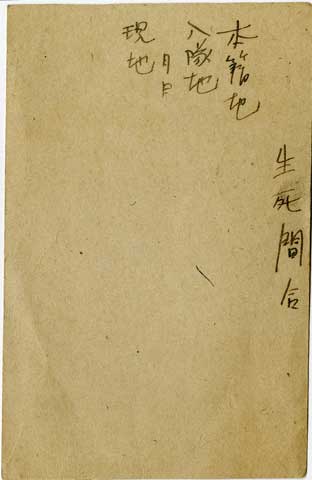 生死間合
本籍地
入隊地
月日
現地